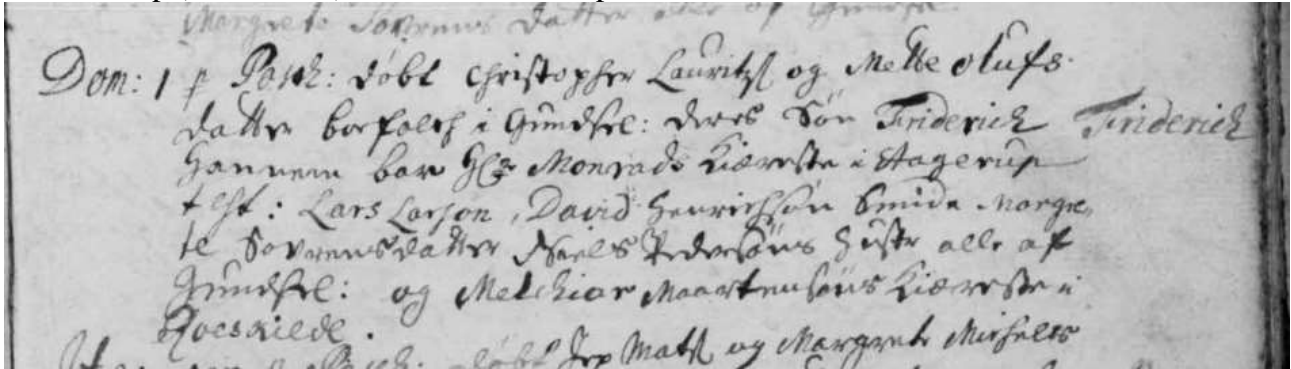 Margrete Sørrens datter alle af Gundsel.
Dom: 1 p Pasch: døbt Christopher Lauritz og Mette olufs
datter boefolch i Gundsel: deres Søn Friderich Friderich
Hannem bar Hr Monrads Kiæreste i Hagerup
test: Lars Larson, David Henrichsøn Smid Margre
te Sørrensdatter Niels Pedersøns Hustr alle af
Gundsel: og Melchior Maartensøns Kiæreste i
Roeskilde.
Pasch: døbt Jep Mats og Margrete Michels